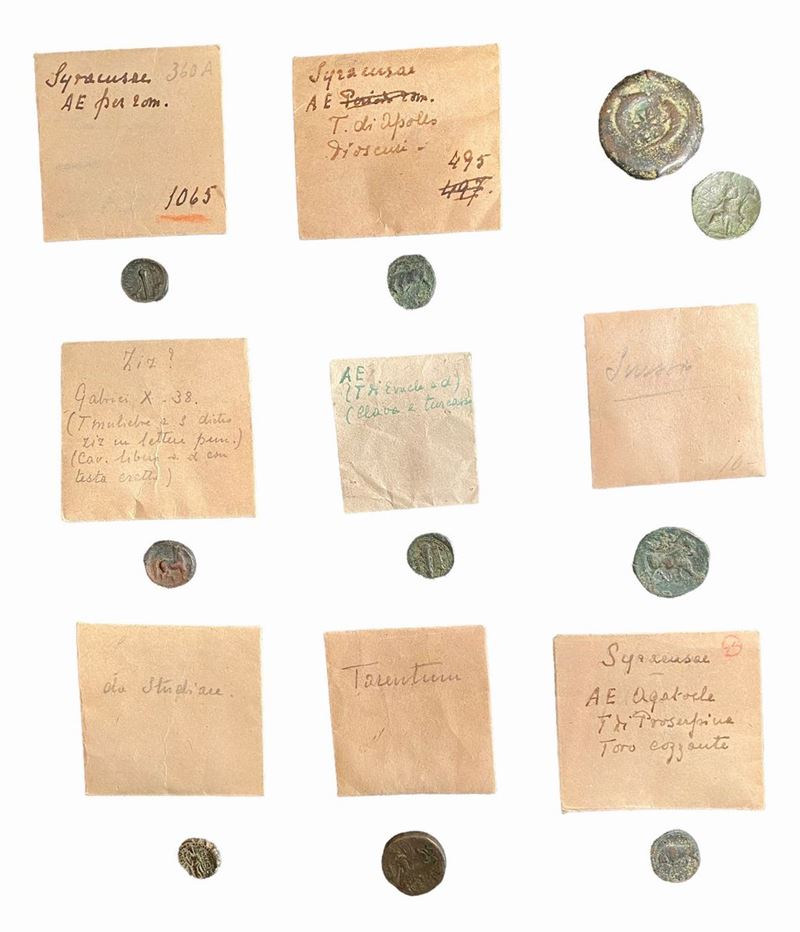 Syracusae 360A
AE per rom.
1065
Syracusae
AE Period rom.
T. di Apollo
Dioscuri -
495
497.
Ziz?
Gabrici X - 38.
(T. muliebre a s dietro
ziz in lettere pun.)
(Cav. libero a d con
testa eretta)
AE
(T di Eracle a d)
(Clava e turcasso
10-
da Studiare.
Tarentum
Syracusae
AE Agatocle
T di Proserpina
Toro cozzante